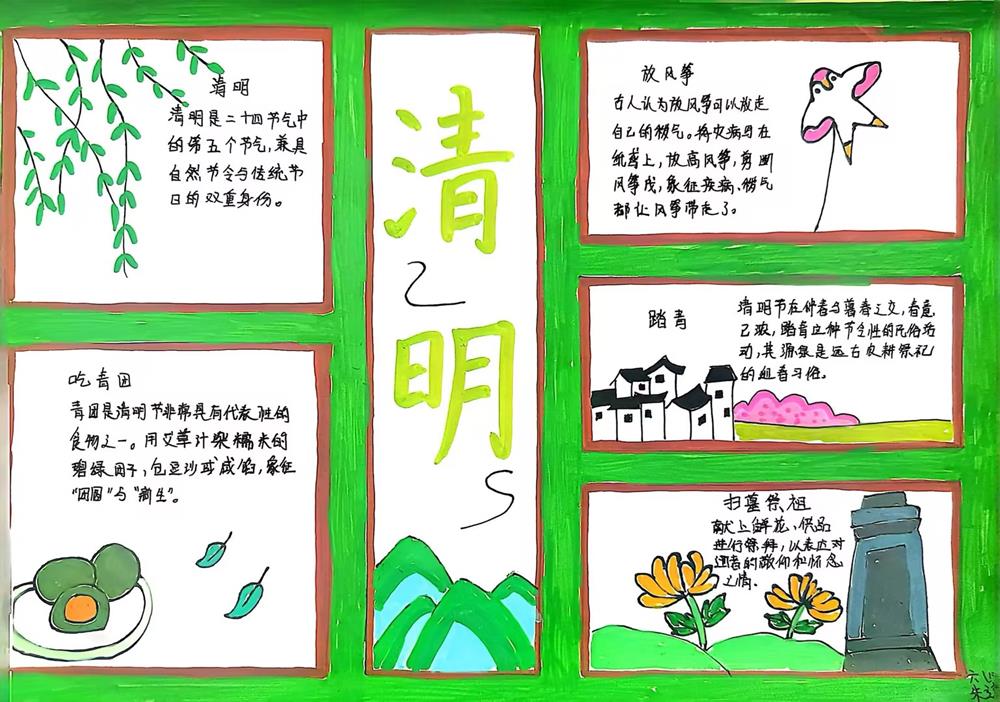 清明
清明是二十四节气中
的第五个节气,兼具
自然节令与传统节
日的双重身份。
吃青团
青团是清明节非常具有代表性的
食物之一。用艾草汁染糯米的
碧绿团子,包豆沙或咸馅,象征
“团圆”与“新生”。
清
明
放风筝
古人认为放风筝可以放走
自己的秽气。将灾病写在
纸鸢上,放高风筝,剪断
风筝线,象征疾病、秽气
都让风筝带走了。
踏青
清明节在仲春与暮春之交,春意
已浓,踏青这种节令性的民俗活
动,其源头是远古农耕祭祀
的迎春习俗。
扫墓祭祖
献上鲜花、供品
进行祭拜,以表达对
逝者的敬仰和怀念
之情。